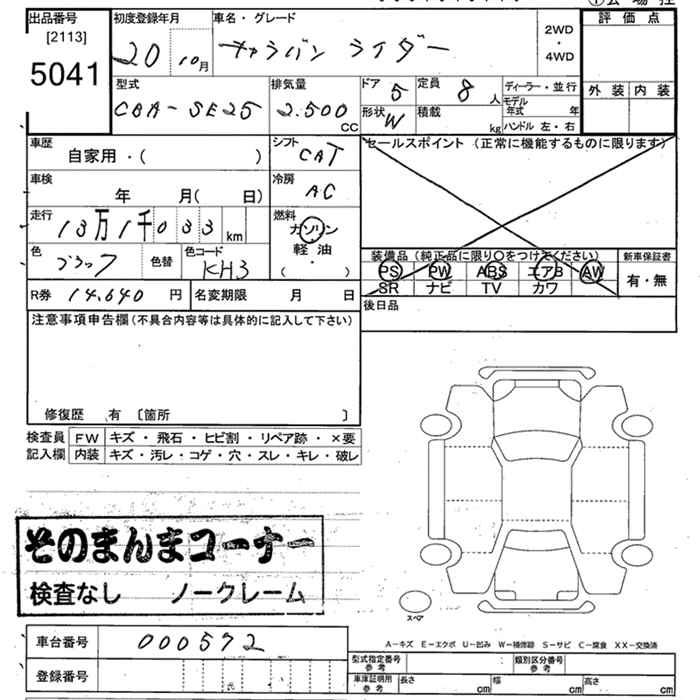 出品番号 初度登録年月 車名・グレード 評価点
[2113]
5041 20 10月 キャラバン ライダー 2WD・4WD
型式 排気量 ドア 5 定員 8人 ディーラー・並行 外装 内装
CBA-SE25 2.500CC 形状 W 積載 kg モデル年式 年
ハンドル 左・右
車歴 自家用・( ) シフト CAT セールスポイント (正常に機能するものに限ります)
車検 年 月( 日) 冷房 AC
走行 13万1千033km 燃料 ガソリン
軽油
( ・ )
色 ブラック 色替 色コード KH3
装備品 (純正品に限り○をつけてください) 新車保証書
PS PW ABS エアB AW 有・無
SR ナビ TV カワ
R券 14,640円 名変期限 月 日 後日品
注意事項申告欄(不具合内容等は具体的に記入して下さい)
修復歴 有 〔箇所 〕
検査員 FW キズ・飛石・ヒビ割・リペア跡・×要
記入欄 内装 キズ・汚レ・コゲ・穴・スレ・キレ・破レ
そのまんまコーナー
検査なし ノークレーム
スペア
A-キズ E-エクボ U-凹み W-補修跡 S-サビ C-腐食 XX-交換済
車台番号 000572
型式指定番号 参考 類別区分番号 参考
登録番号 車庫証明用 参考 長さ cm 幅 cm 高さ cm